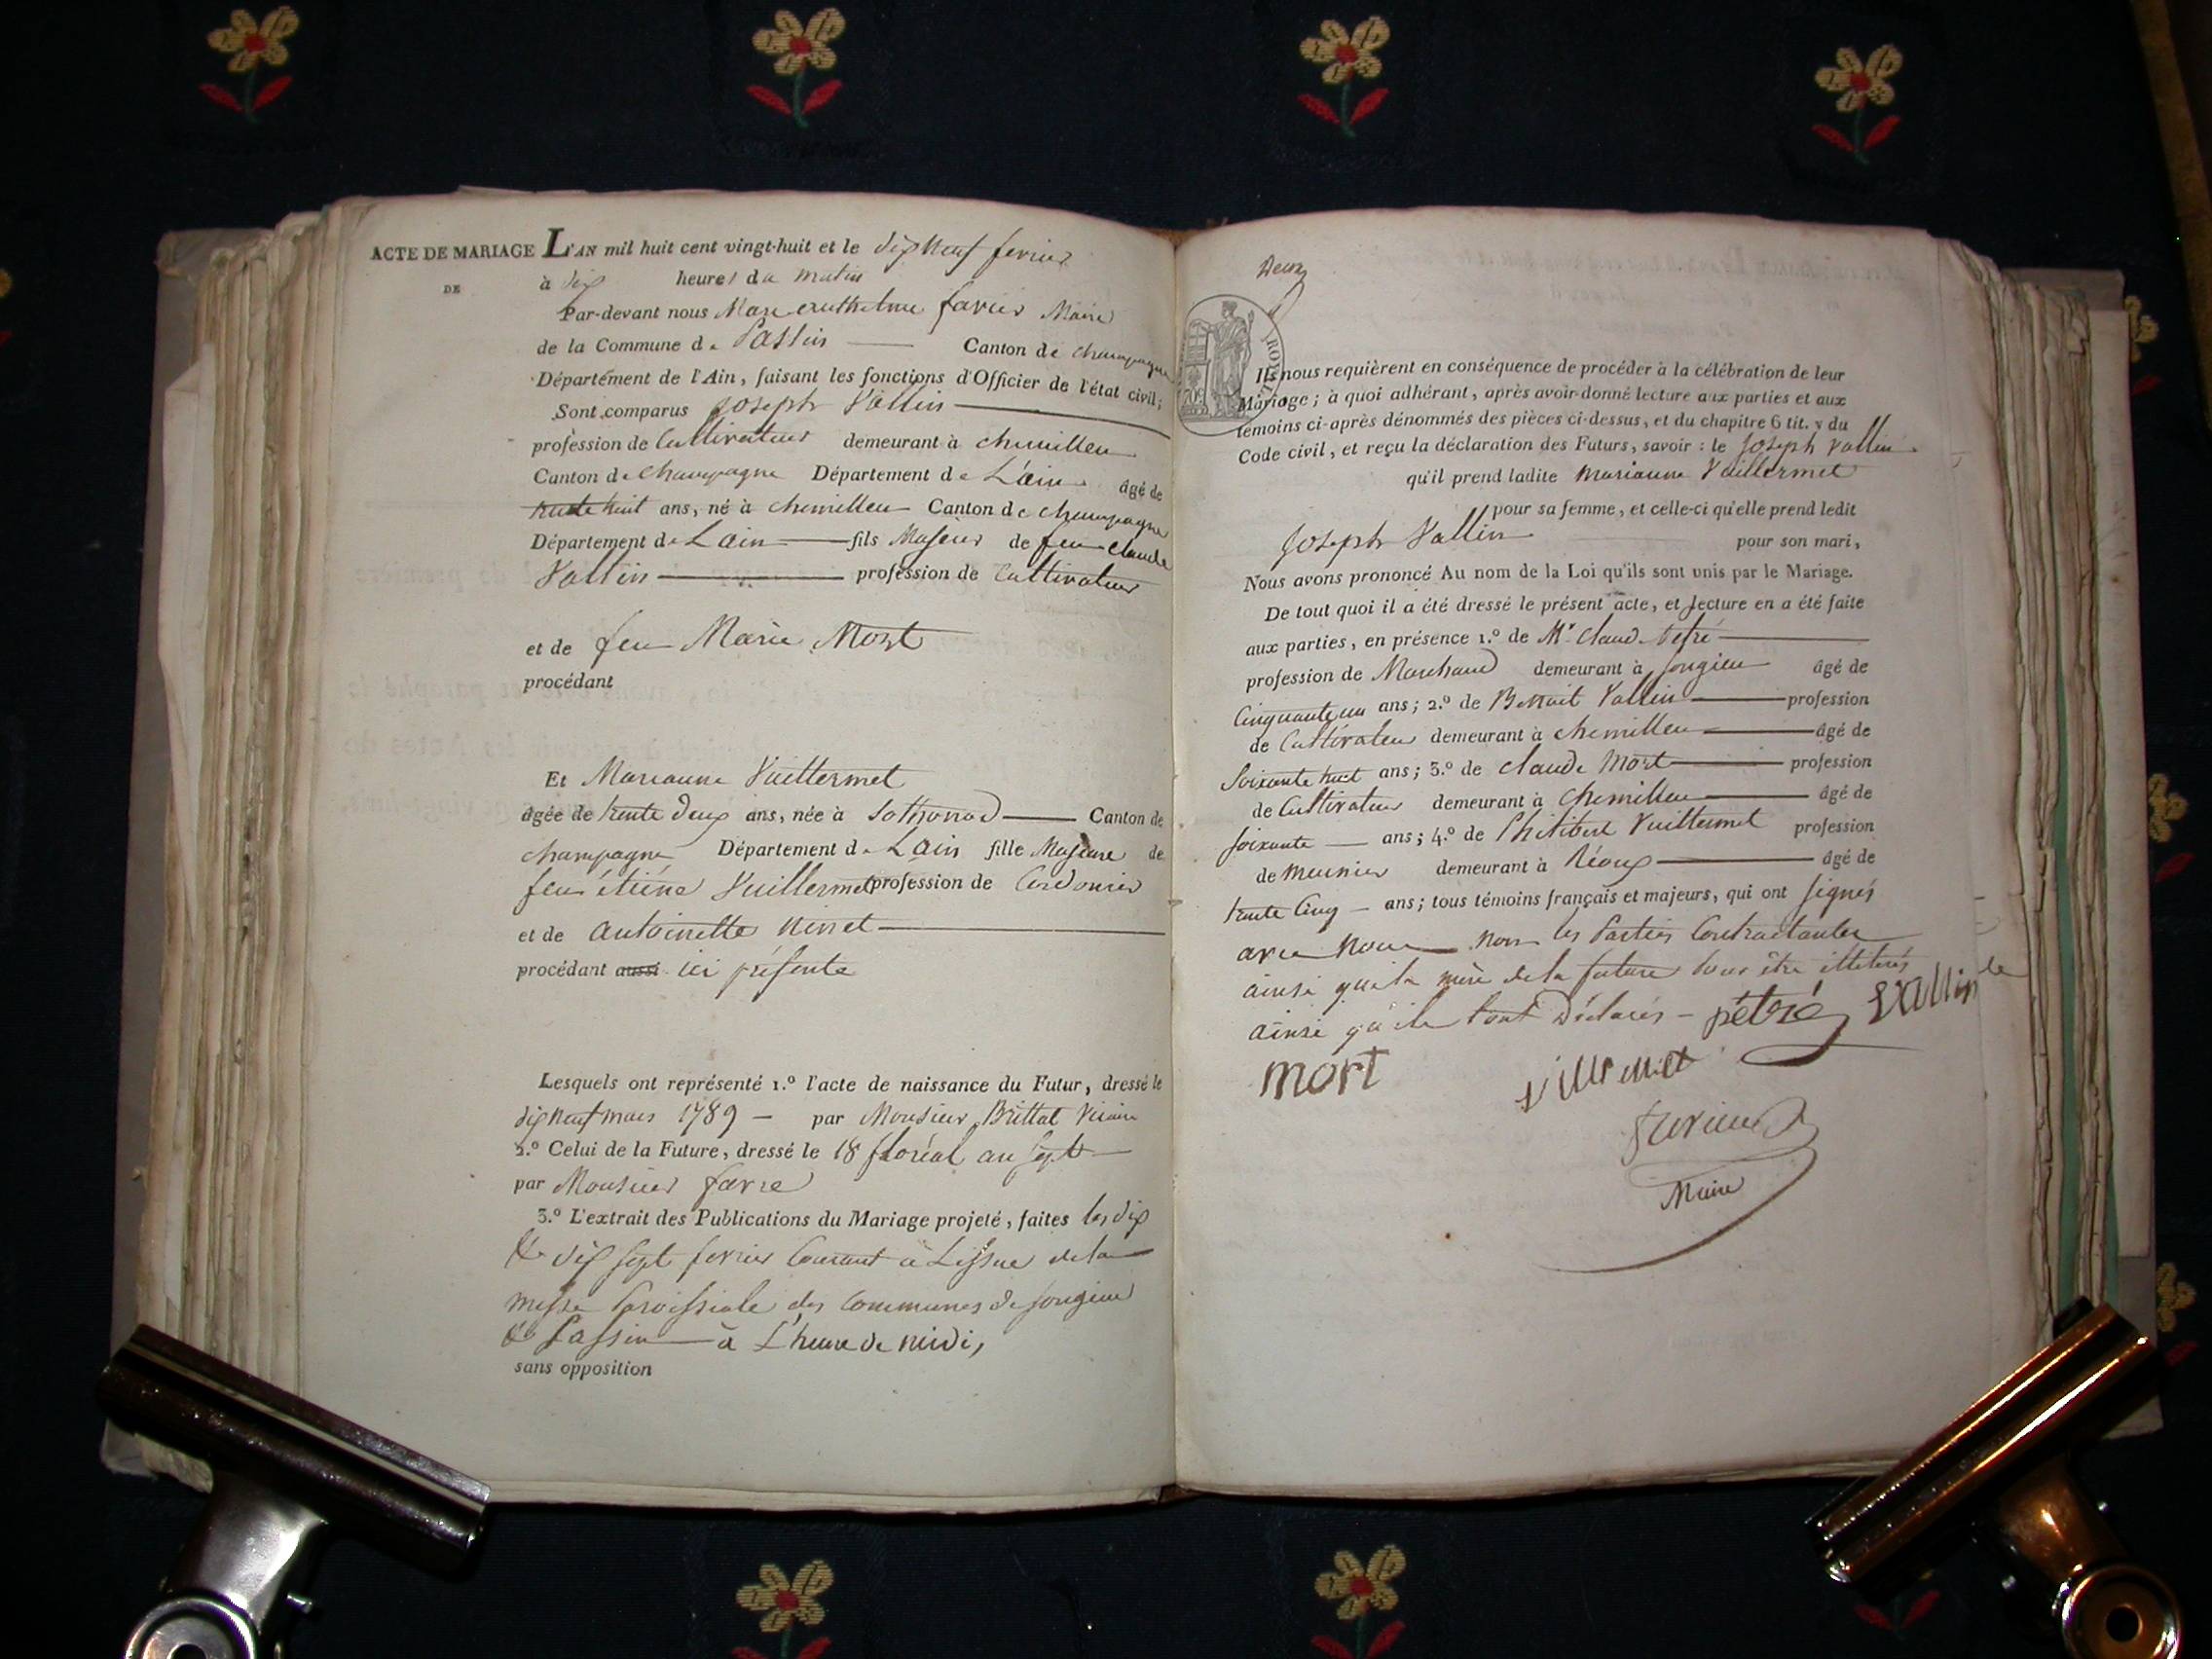 ACTE DE MARIAGE
DE
L'AN mil huit cent vingt-huit et le dix neuf fevrier
à dix heures du matin
Par-devant nous Marc Favier Maire
de la Commune de Passin Canton de champagne
Département de l'Ain, faisant les fonctions d'Officier de l'état civil;
Sont comparus Joseph Vallin
profession de Cultivateur demeurant à chemilleu
Canton de Champagne Département de L'ain âgé de
trente huit ans, né à chemilleu Canton de champagne
Département de L'ain fils Majeur de feu claude
Vallin profession de Cultivateur
et de feu Marie Mort
procédant
Et Marianne Vuillermet
âgée de trente deux ans, née à Sothonod Canton de
champagne Département de L'ain fille Majeure de
feu étiène Vuillermet profession de Cordonier
et de antoinette ninet
procédant aussi ici présente
Lesquels ont représenté 1.º l'acte de naissance du Futur, dressé le
dix neuf mars 1789 — par Monsieur Brittal Vicaire
2.º Celui de la Future, dressé le 18 floréal an sept
par Monsieur favre
3.º L'extrait des Publications du Mariage projeté, faites les dix
& dix sept fevrier Courant à L'issue de la
messe Paroissiale des Communes de songieu
& Passin à L'heure de midi,
sans opposition
Deux
ROYAL
Ils nous requièrent en conséquence de procéder à la célébration de leur
Mariage; à quoi adhérant, après avoir donné lecture aux parties et aux
témoins ci-après dénommés des pièces ci-dessus, et du chapitre 6 tit. v du
Code civil, et reçu la déclaration des Futurs, savoir : le Joseph Vallin
qu'il prend ladite Marianne Vuillermet
pour sa femme, et celle-ci qu'elle prend ledit
Joseph Vallin pour son mari,
Nous avons prononcé Au nom de la Loi qu'ils sont unis par le Mariage.
De tout quoi il a été dressé le présent acte, et lecture en a été faite
aux parties, en présence 1.º de Mr Claud
profession de Marchand demeurant à songieu âgé de
Cinquante un ans; 2.º de Benoit Vallin profession
de Cultivateur demeurant à chemilleu âgé de
Soixante huit ans; 3.º de claude Mort profession
de Cultivateur demeurant à chemilleu âgé de
soixante — ans; 4.º de Philibert Vuillermet profession
de meunier demeurant à Réoux âgé de
trente Cinq — ans; tous témoins français et majeurs, qui ont signés
avec nous non les Parties Contractantes
ainsi que la mère de la future pour être illétérés
ainsi qu'ils l'ont Déclarés — pétré Vallin
mort
Maire